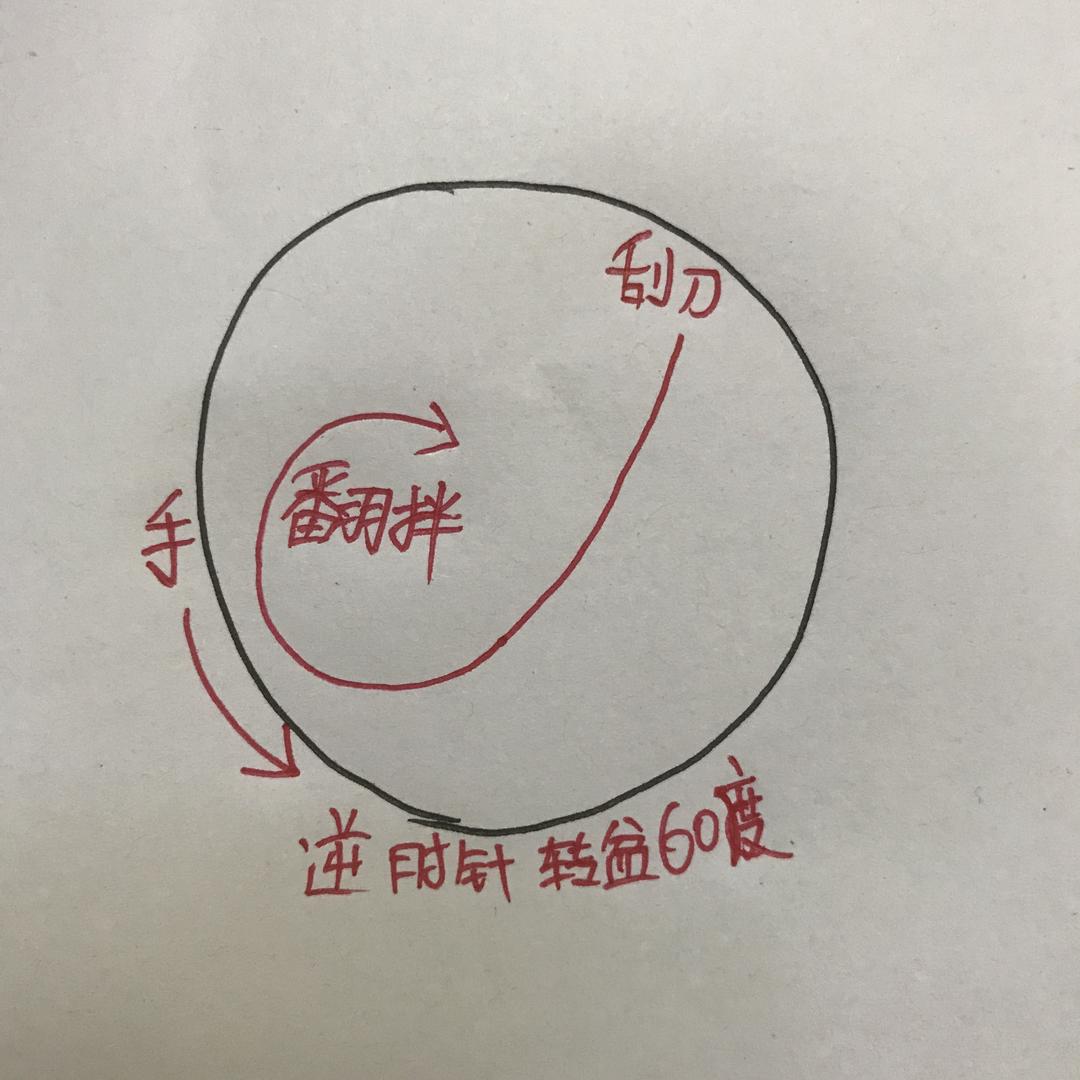 刮刀
翻拌
手
逆时针转盆60度